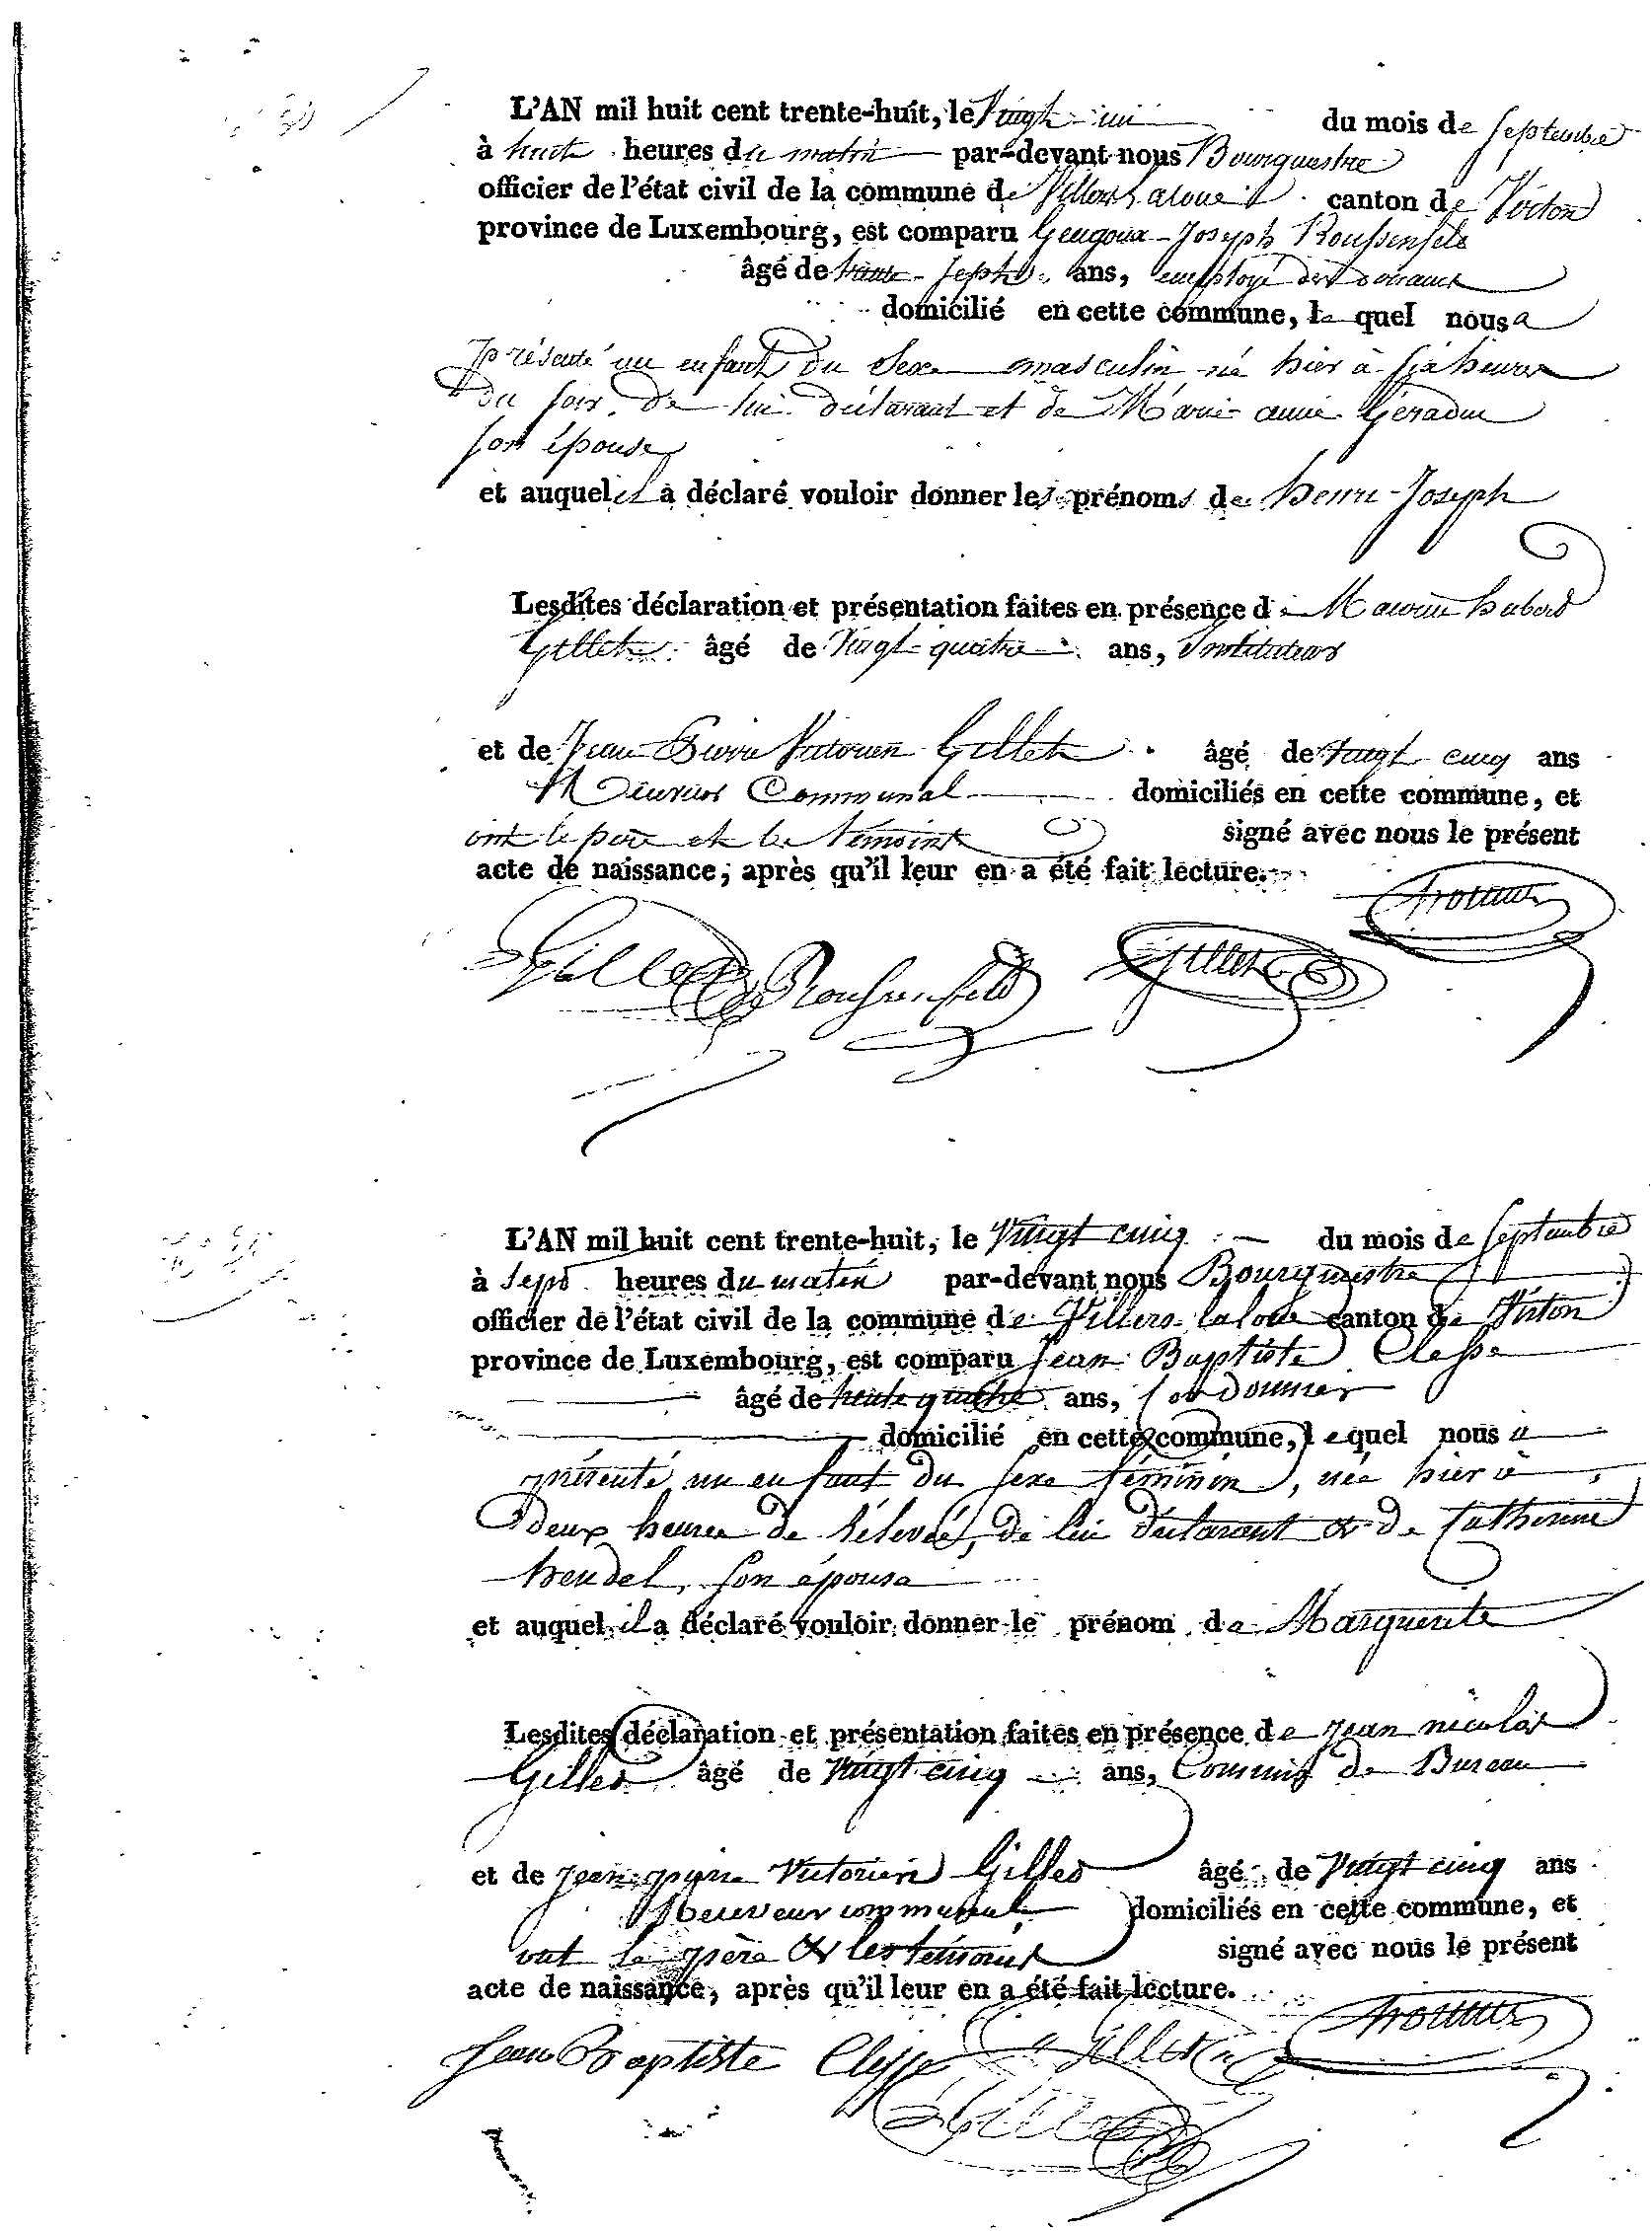 L'AN mil huit cent trente-huit, le Vingt-un du mois de Septembre
à huit heures du matin par-devant nous Bourguestre
officier de l'état civil de la commune de Villers laloue canton de Virton
province de Luxembourg, est comparu Gengoux-Joseph Roussenfels
âgé de trente-Sept ans, employé des Douanes
domicilié en cette commune, le quel nous a
présenté un enfant du Sexe masculin né hier à six heures
du soir, de lui déclarant et de Marie anne Geradin
son épouse
et auquel il a déclaré vouloir donner les prénoms de henri-Joseph
Lesdites déclaration et présentation faites en présence de hubert
Gillet âgé de Vingt-quatre ans, Instituteur
et de Jean Pierre Victorien Gillet âgé de Vingt cinq ans
Receveur Communal domiciliés en cette commune, et
ont le père et les témoins signé avec nous le présent
acte de naissance, après qu'il leur en a été fait lecture.
Gillet Roussenfeld Gillet
L'AN mil huit cent trente-huit, le Vingt cinq du mois de Septembre
à Sept heures du matin par-devant nous Bourguestre
officier de l'état civil de la commune de Villers-laloue canton de Virton
province de Luxembourg, est comparu Jean Baptiste Clesse
âgé de trente quatre ans, Cordonnier
domicilié en cette commune, le quel nous a
présenté un enfant du sexe féminin, née hier à
Deux heures de rélevée, de lui déclarant & de Catherine
hendel, son épouse
et auquel il a déclaré vouloir donner le prénom de Marguerite
Lesdites déclaration et présentation faites en présence de jean nicolas
Gillet âgé de Vingt cinq ans, Commis de Bureau
et de jean pierre Victorien Gillet âgé de Vingt cinq ans
Receveur communal domiciliés en cette commune, et
ont le père & les témoins signé avec nous le présent
acte de naissance, après qu'il leur en a été fait lecture.
Jean Baptiste Clesse Gillet
Gillet